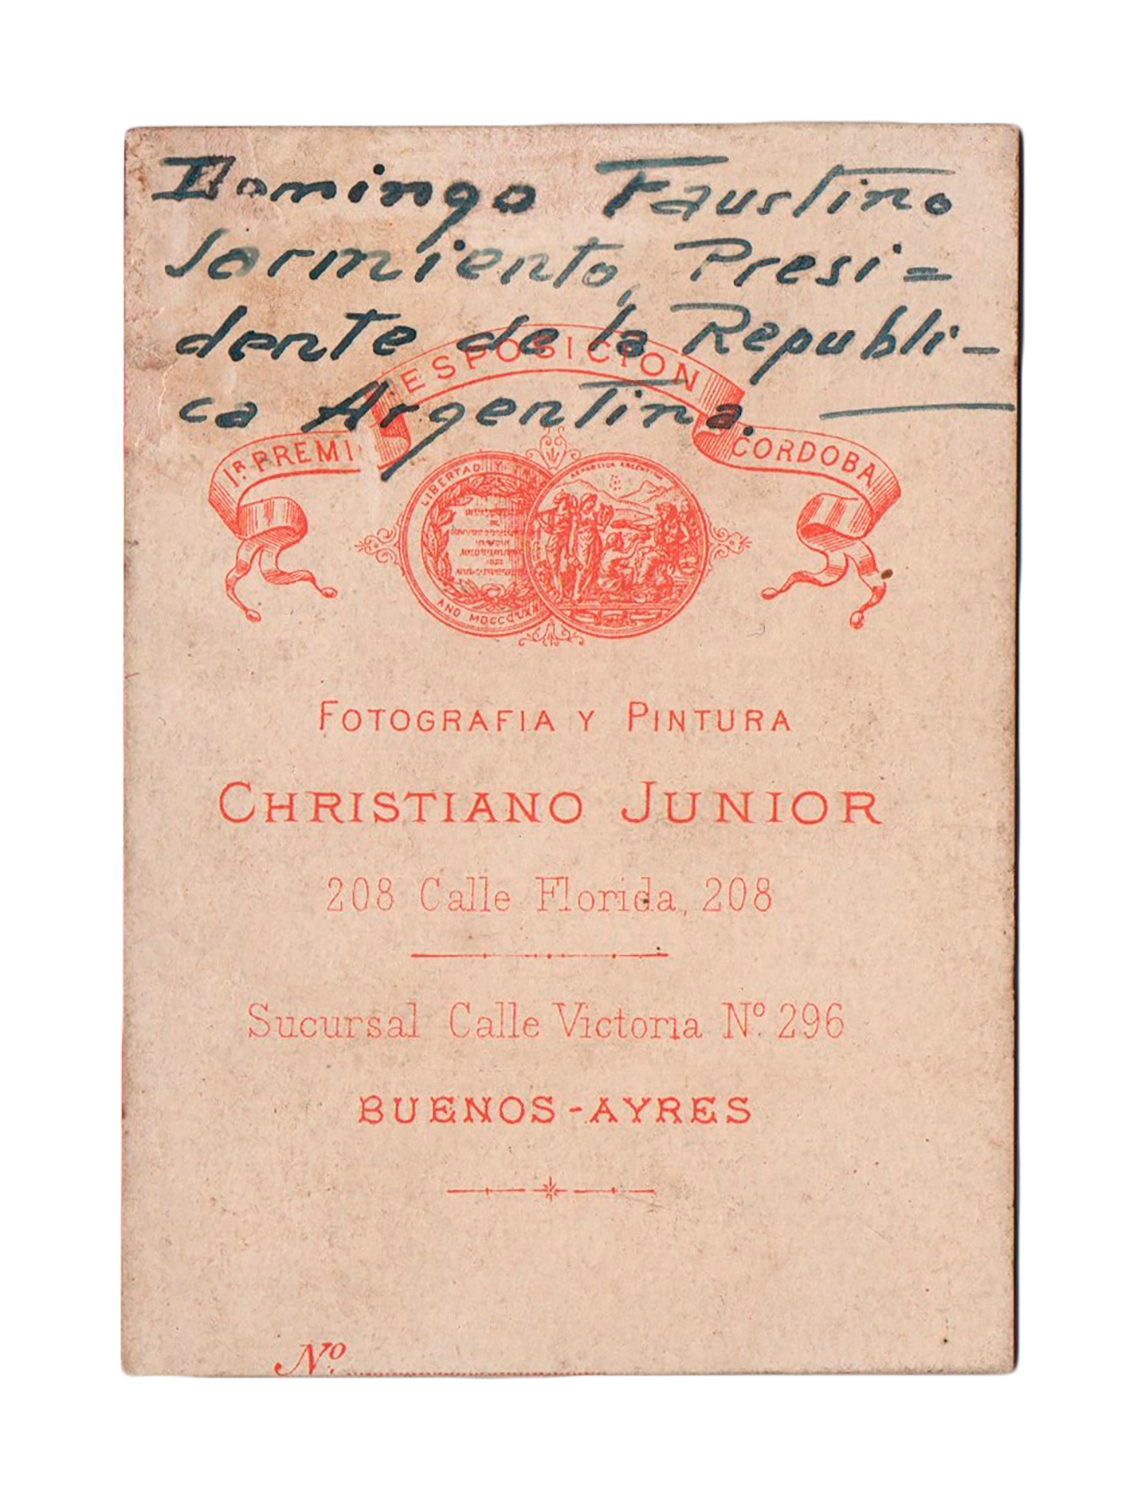 Domingo Faustino
Sarmiento, Presi=
dente de la Republi-
ca Argentina.
ESPOSICION
1R. PREMI
CORDOBA
LIBERTAD Y
REPUBLICA
ANO MDCCCLXX
FOTOGRAFIA Y PINTURA
CHRISTIANO JUNIOR
208 Calle Florida, 208
Sucursal Calle Victoria Nº. 296
BUENOS-AYRES
Nº